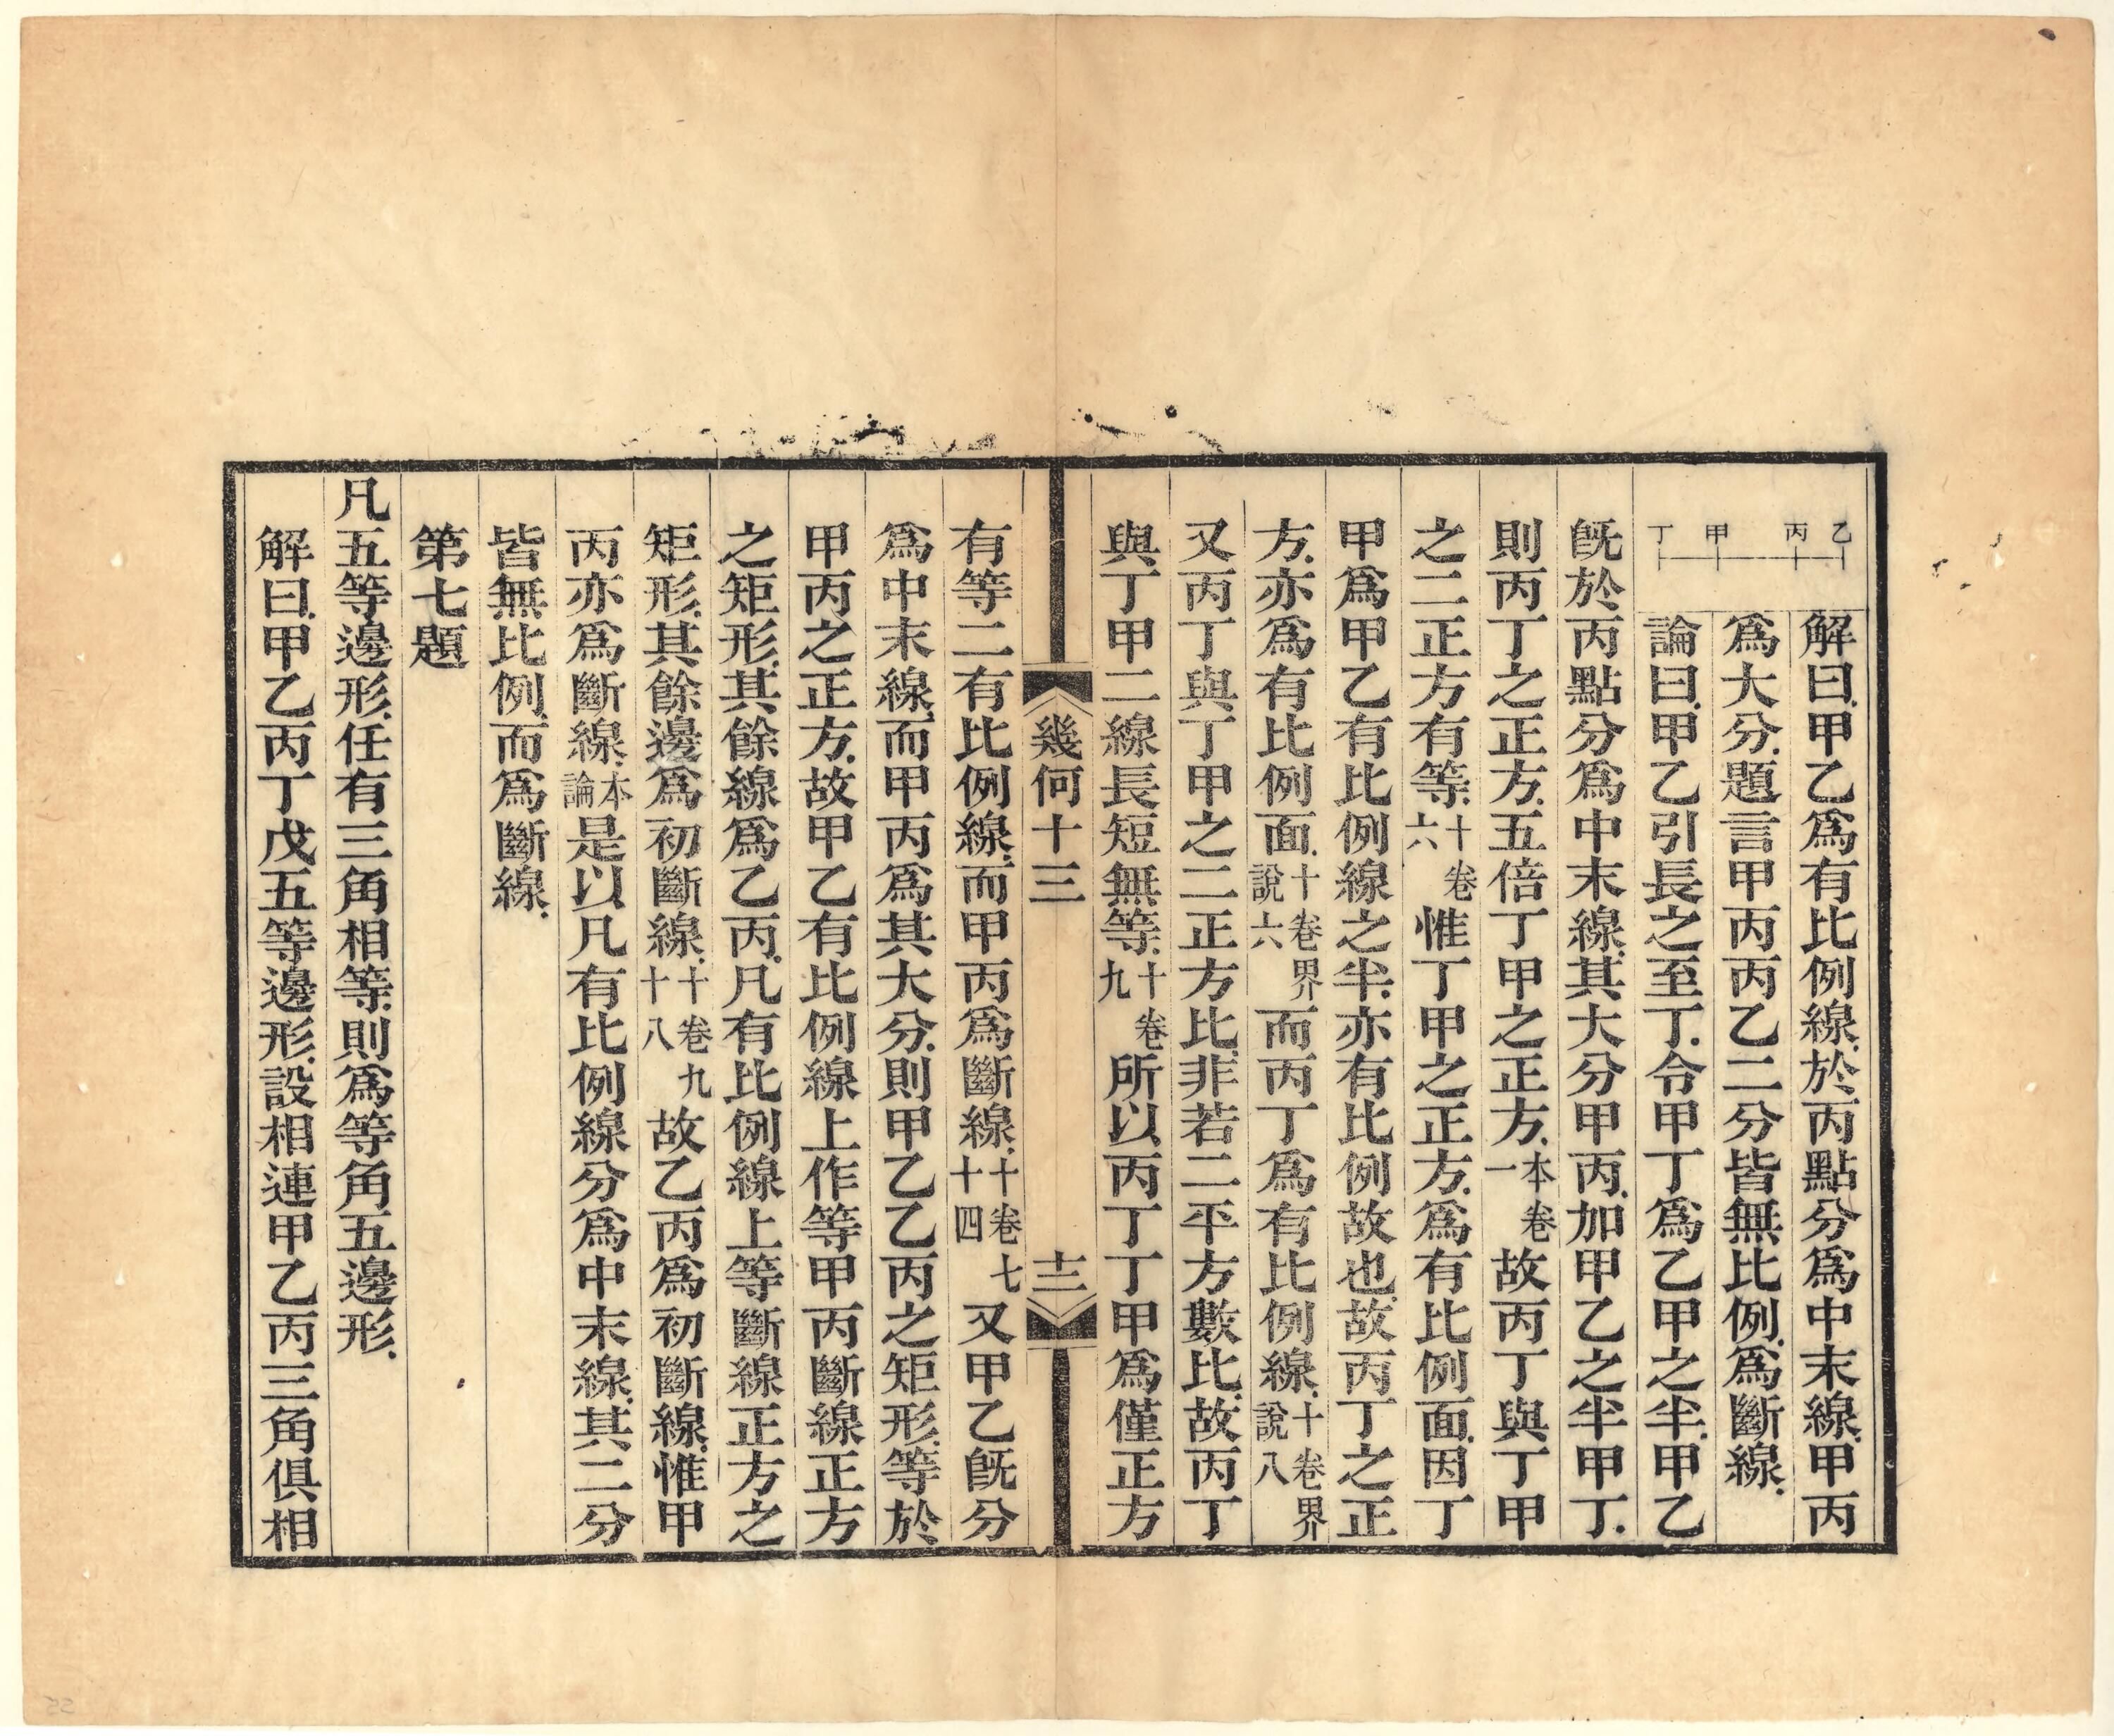 乙 丙 甲 丁
解曰.甲乙爲有比例線.於丙點分爲中末線.甲丙
爲大分.題言甲丙丙乙二分皆無比例.爲斷線.
論曰.甲乙引長之至丁.令甲丁爲乙甲之半.甲乙
旣於丙點分爲中末線.其大分甲丙.加甲乙之半甲丁.
則丙丁之正方.五倍丁甲之正方.本卷一故丙丁與丁甲
之二正方有等.十卷六惟丁甲之正方.爲有比例面.因丁
甲爲甲乙有比例線之半.亦有比例故也.故丙丁之正
方.亦爲有比例面.十卷界說六而丙丁爲有比例線.十卷界說八
又丙丁與丁甲之二正方比.非若二平方數比.故丙丁
與丁甲二線長短無等.十卷九所以丙丁丁甲爲僅正方
幾何十三 十三
有等二有比例線.而甲丙爲斷線.十卷七十四又甲乙旣分
爲中末線.而甲丙爲其大分.則甲乙乙丙之矩形.等於
甲丙之正方.故甲乙有比例線上作等甲丙斷線正方
之矩形.其餘線爲乙丙.凡有比例線上等斷線正方之
矩形.其餘邊爲初斷線.十卷九十八故乙丙爲初斷線.惟甲
丙亦爲斷線.本論是以凡有比例線分爲中末線.其二分
皆無比例.而爲斷線.
第七題
凡五等邊形.任有三角相等.則爲等角五邊形.
解曰.甲乙丙丁戊五等邊形.設相連甲乙丙三角俱相